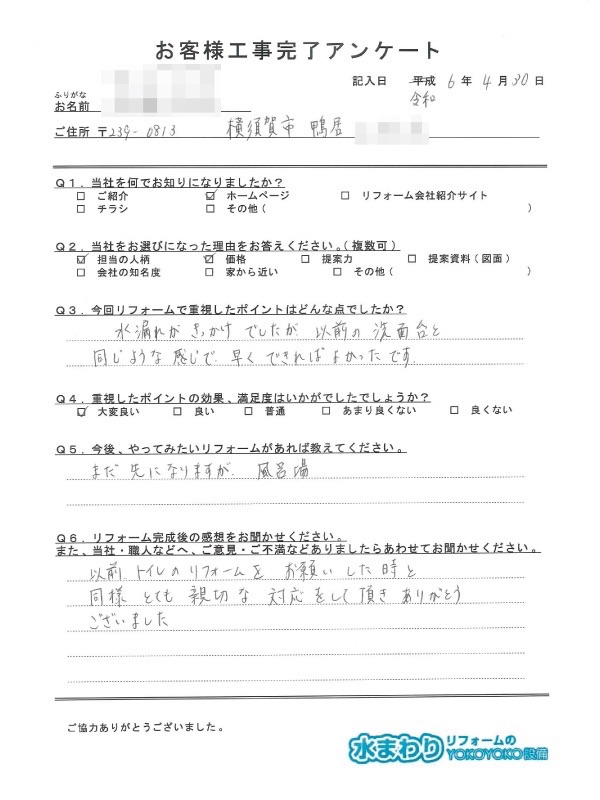 お客様工事完了アンケート
記入日 平成 6 年 4 月 30 日
令和
ふりがな
お名前
ご住所 〒239-0813 横須賀市 鴨居
Q1. 当社を何でお知りになりましたか?
□ ご紹介 ☑ ホームページ □ リフォーム会社紹介サイト
□ チラシ □ その他 ( )
Q2. 当社をお選びになった理由をお答えください。(複数可)
☑ 担当の人柄 ☑ 価格 □ 提案力 □ 提案資料(図面)
□ 会社の知名度 □ 家から近い □ その他 ( )
Q3. 今回リフォームで重視したポイントはどんな点でしたか?
水漏れがきっかけでしたが 以前の洗面台と
同じような感じで、早くできればよかったです。
Q4. 重視したポイントの効果、満足度はいかがでしたでしょうか?
☑ 大変良い □ 良い □ 普通 □ あまり良くない □ 良くない
Q5. 今後、やってみたいリフォームがあれば教えてください。
まだ先になりますが、風呂場
Q6. リフォーム完成後の感想をお聞かせください。
また、当社・職人などへ、ご意見・ご不満などありましたらあわせてお聞かせください。
以前、トイレのリフォームを お願いした時と
同様 とても 親切な 対応をして頂き ありがとう
ございました
ご協力ありがとうございました。
水まわりリフォームの
YOKOYOKO設備